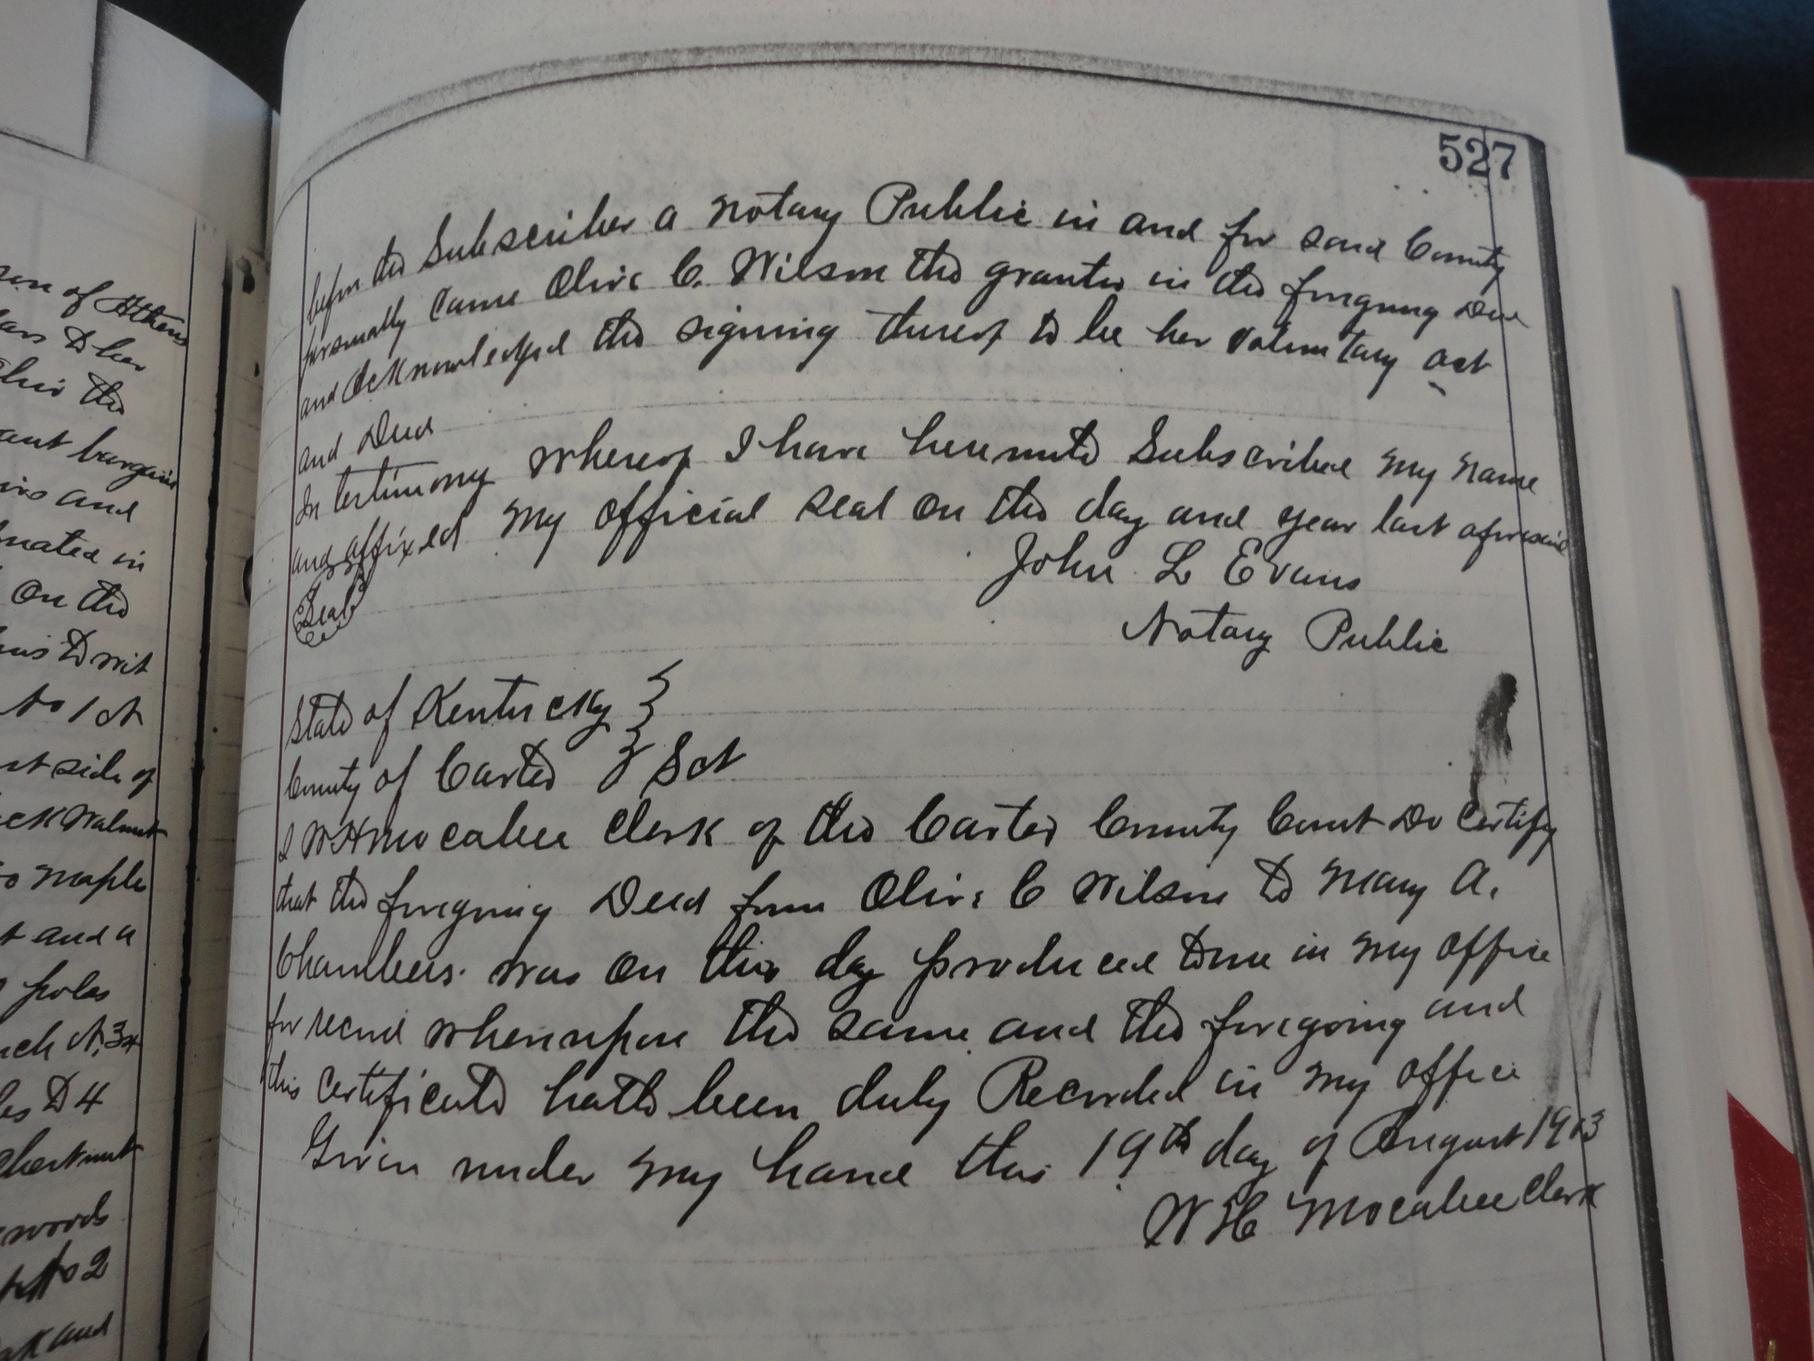 son of Athens
ars to her
this the
ant bargain
irs and
uated in
On the
ins to wit
No 1 at
st side of
ck Walnut
to maple
t and a
poles
ch N. 34
les to 4
chestnut
woods
No 2
and
527
before the Subscriber a notary Public in and for said County
personally came Olive C. Wilson the grantor in the foregoing Deed
and acknowledged the signing thereof to be her voluntary act
and Deed
In testimony whereof I have hereunto Subscribed my name
and affixed my official seal on the day and year last aforesaid
Seal
John L Evans
Notary Public
State of Kentucky }
County of Carter } Sct
I W H Mocabee Clerk of the Carter County Court Do certify
that the foregoing Deed from Olive C Wilson to Mary A.
Chambers. was on this day produced to me in my office
for record whereupon the same and the foregoing and
this certificate hath been duly Recorded in my office
Given under my hand this 19th day of August 1913
W H Mocabee Clerk